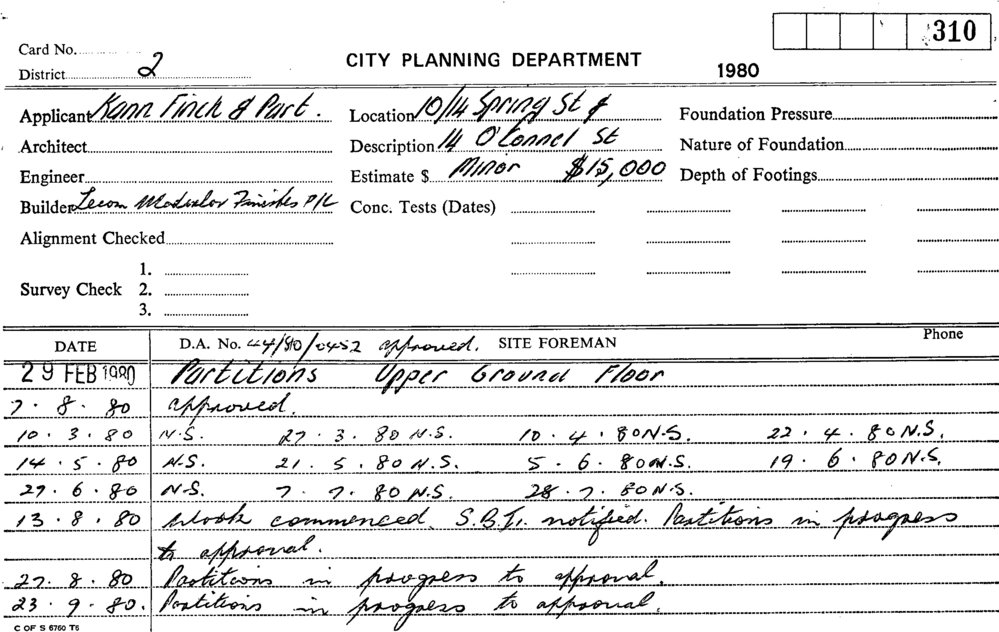 310
Card No.
District 2
CITY PLANNING DEPARTMENT
1980
Applicant Kann Finch & Part.
Location 10/14 Spring St &
Foundation Pressure
Architect
Description 14 O'Connel St
Nature of Foundation
Engineer
Estimate $ Minor $15,000
Depth of Footings
Builder Finishes P/L
Conc. Tests (Dates)
Alignment Checked
Survey Check 1.
2.
3.
DATE D.A. No. 44/80/0452 approved. SITE FOREMAN Phone
29 FEB 1980 Partitions Upper Ground Floor
7.8.80 approved.
10.3.80 N.S. 27.3.80 N.S. 10.4.80 N.S. 22.4.80 N.S.
14.5.80 N.S. 21.5.80 N.S. 5.6.80 N.S. 19.6.80 N.S.
27.6.80 N.S. 7.7.80 N.S. 28.7.80 N.S.
13.8.80 Work commenced. S.B.I. notified. Partitions in progress
to approval.
27.8.80 Partitions in progress to approval.
23.9.80. Partitions in progress to approval.
C OF S 6760 T6